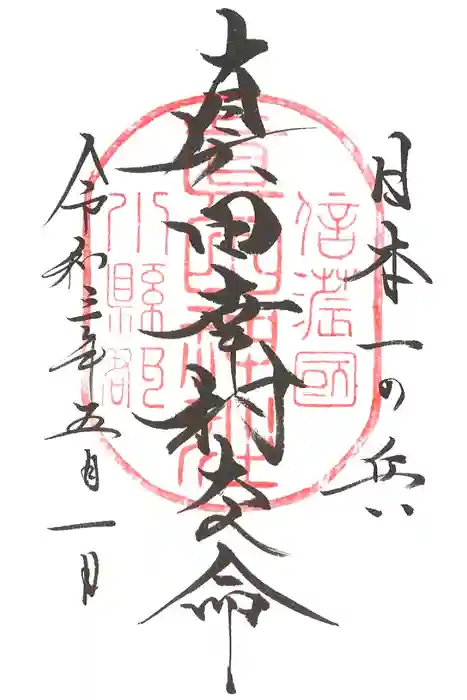 日本一の兵
真田幸村大人命
令和三年五月一日
信濃國
眞田神社
小縣郡